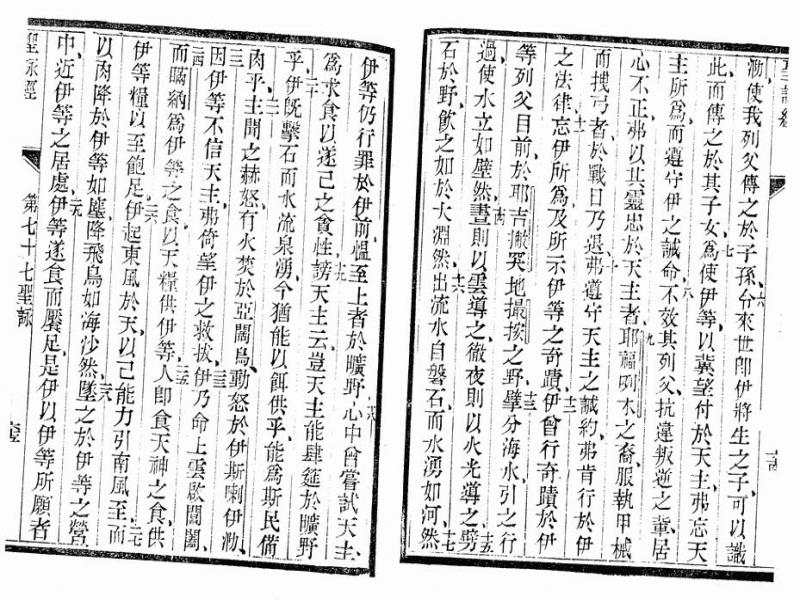 聖詠經
十四
泐使我列父傳之於子孫六台來世卽伊將生之子可以識
此而傳之於其子女七爲使伊等以冀望付於天主弗忘天
主所爲而遵守伊之誡命八不效其列父抗違叛逆之輩居
心不正弗以其靈忠於天主者九耶福列木之裔服執甲械
而拽弓者於戰日乃退十弗遵守天主之誡約弗肯行於伊
之法律十一忘伊所爲及所示伊等之奇蹟十二伊曾行奇蹟於伊
等列父目前於耶吉徹哭地撮挨之野十三擘分海水引之行
過使水立如壁然十四晝則以雲導之徹夜則以火光導之十五劈
石於野飲之如於大淵然十六出流水自磐石而水湧如河然十七
伊等仍行罪於伊前慍至上者於曠野十八心中曾嘗試天主
爲求食以遂己之貪性十九謗天主云豈天主能肆筵於曠野
乎二十伊旣擊石而水流泉湧今猶能以餌供乎能爲斯民備
肉乎二一主聞之赫怒有火焚於亞闊烏動怒於伊斯喇伊泐
二二因伊等不信天主弗倚望伊之救拔二三伊乃命上雲啟闢闔
二四而瞞納爲伊等之食以天糧供伊等二五人卽食天神之食供
伊等糧以至飽足二六伊起東風於天以己能力引南風至二七而
以肉降於伊等如塵降飛鳥如海沙然二八墜之於伊等之營
中近伊等之居處二九伊等遂食而饜足是伊以伊等所願者
聖詠經
第七十七聖詠
十五